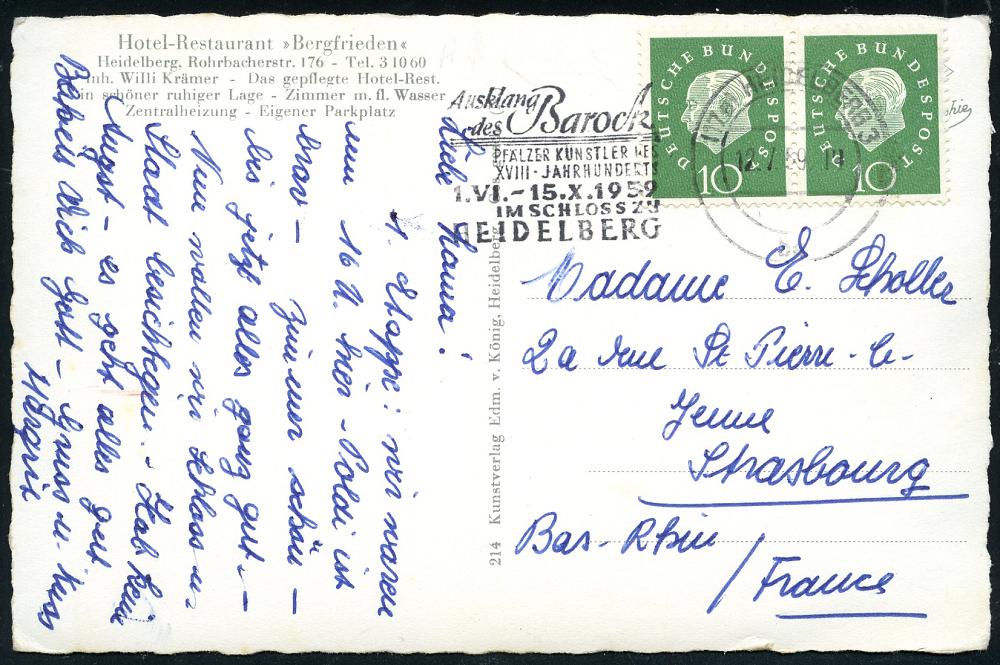 Hotel-Restaurant »Bergfrieden«
Heidelberg, Rohrbacherstr. 176 - Tel. 3 10 60
Inh. Willi Krämer - Das gepflegte Hotel-Rest.
in schöner ruhiger Lage - Zimmer m. fl. Wasser
Zentralheizung - Eigener Parkplatz
Liebe Hanna!
1. Etappe: wir waren
um 16 U. hier - Poldi ist
brav - Zimmer schön -
bis jetzt alles ganz gut. -
Nun wollen wir Schloss u.
Stadt besichtigen. - Hab keine
Angst - es geht alles gut
Behüt Dich Gott - Gruss u. Kuss
Margrit
214 Kunstverlag Edm. v. König, Heidelberg
Ausklang
des Barock
PFÄLZER KÜNSTLER DES
XVIII. JAHRHUNDERTS
1.VI.-15.X.1959
IM SCHLOSS ZU
HEIDELBERG
DEUTSCHE BUNDESPOST
10
DEUTSCHE BUNDESPOST
10
HEIDELBERG 3
Madame E. Scholler
2a rue St Pierre-le-
Jeune
Strasbourg
Bas-Rhin
/ France